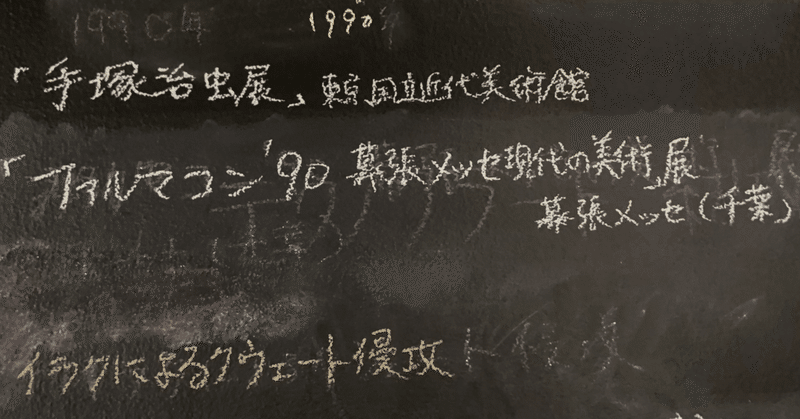 1990
「手塚治虫展」東京国立近代美術館
「ファルマコン'90 幕張メッセ現代の美術」展
幕張メッセ(千葉)
イラクによるクウェート侵攻